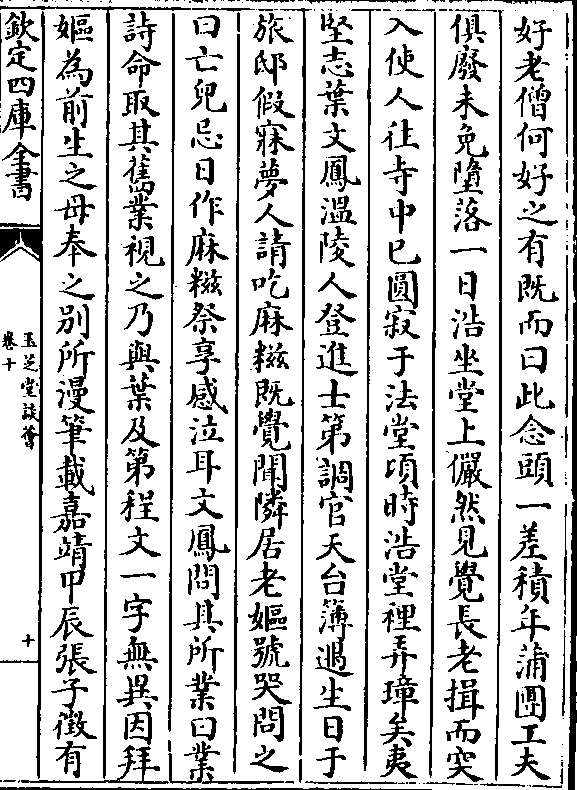 好老僧何好之有既而曰此念頭一差積年蒲團工夫
俱廢未免墮落一日浩坐堂上儼然見覺長老揖而突
入使人往寺中已圓寂于法堂頃時浩堂裡弄璋矣夷
堅志葉文鳳溫陵人登進士第調官天台簿遇生日于
旅邸假寐夢人請吃麻糍既覺聞隣居老嫗號哭問之
曰亡兒忌日作麻糍祭享感泣耳文鳳問其所業曰業
詩命取其舊業視之乃與葉及第程文一字無異因拜
嫗為前生之母奉之別所漫筆載嘉靖甲辰張子徵有
欽定四庫全書
玉芝堂談薈
卷十
十